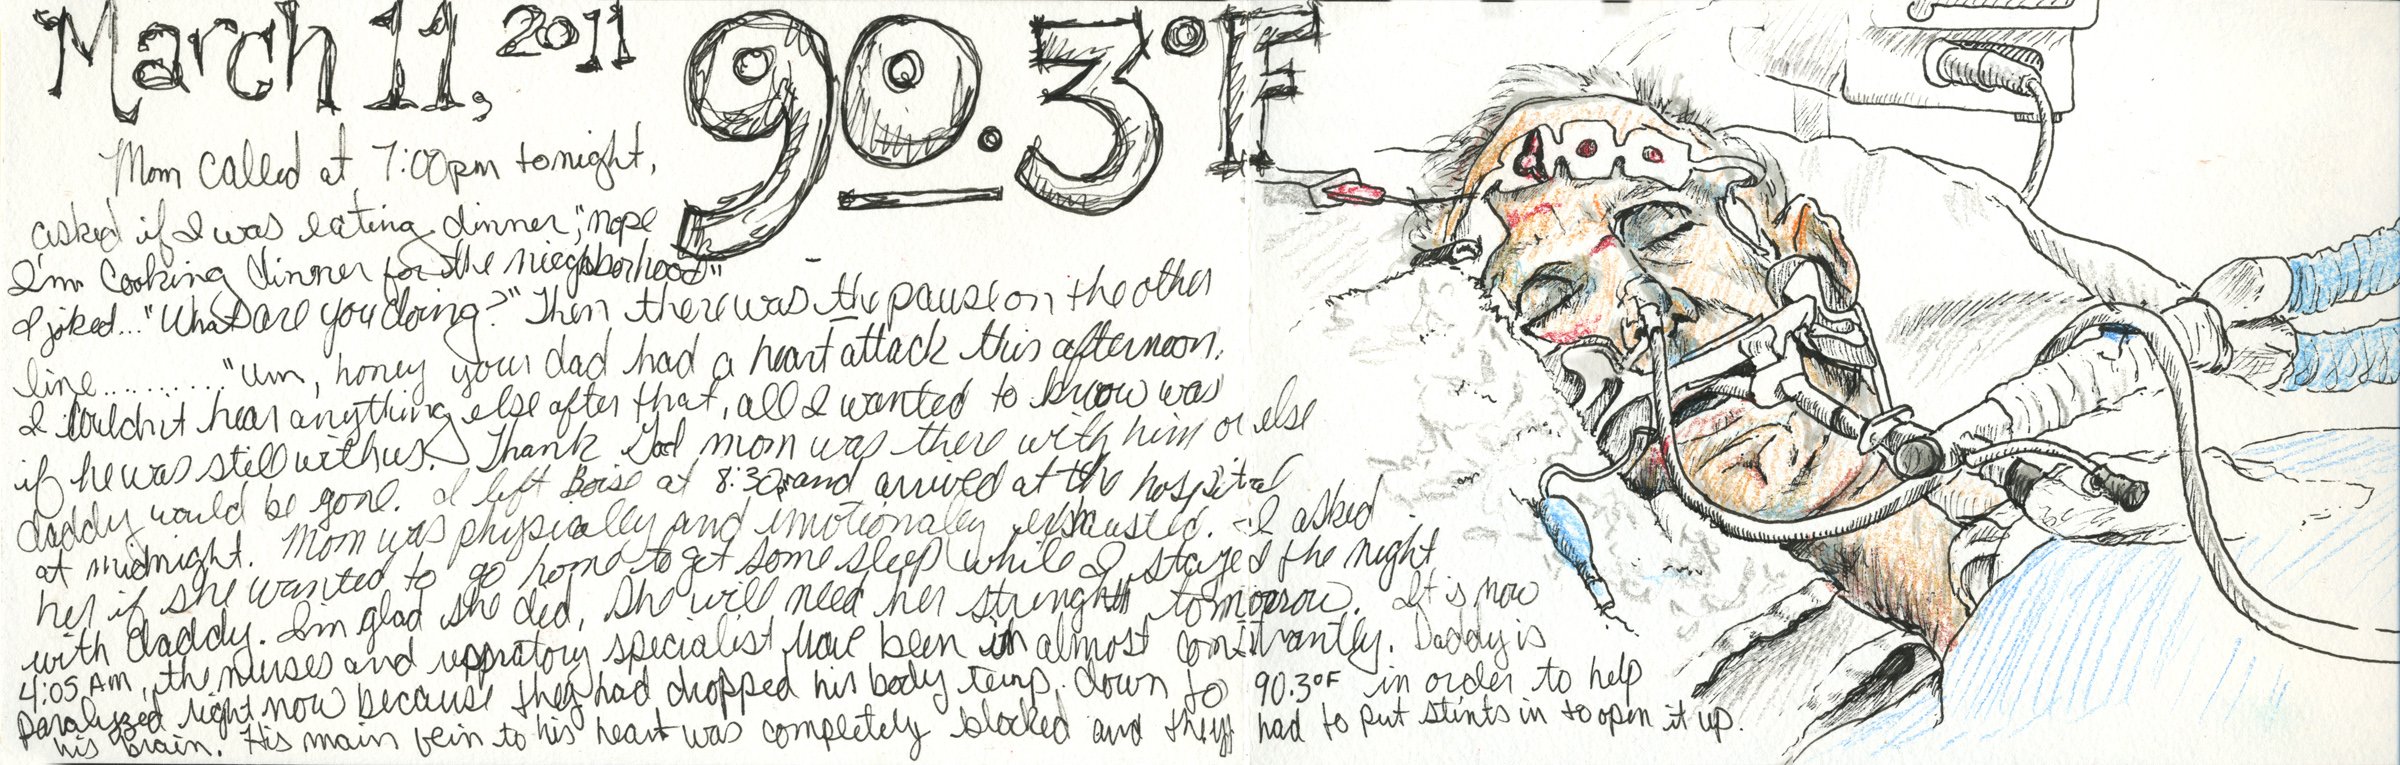 March 11, 2011 90.3°F
Mom called at 7:00pm tonight,
asked if I was eating dinner, "nope
I'm cooking dinner for the nieghborhood"
I joked... "What are you doing?" Then there was the pause on the other
line.......... "um, honey your dad had a heart attack this afternoon.
I couldn't hear anything else after that, all I wanted to know was
if he was still with us. Thank God mom was there with him or else
daddy would be gone. I left Boise at 8:30pm and arrived at the hospital
at midnight. Mom was physically and emotionally exhausted. I asked
her if she wanted to go home to get some sleep while I stayed the night
with daddy. I'm glad she did, she will need her strength tomorrow. It is now
4:05 AM, the nurses and respratory specialist have been in almost constantly. Daddy is
paralyzed right now because they had dropped his body temp. down to 90.3°F in order to help
his brain. His main vein to his heart was completely blocked and they had to put stints in to open it up.